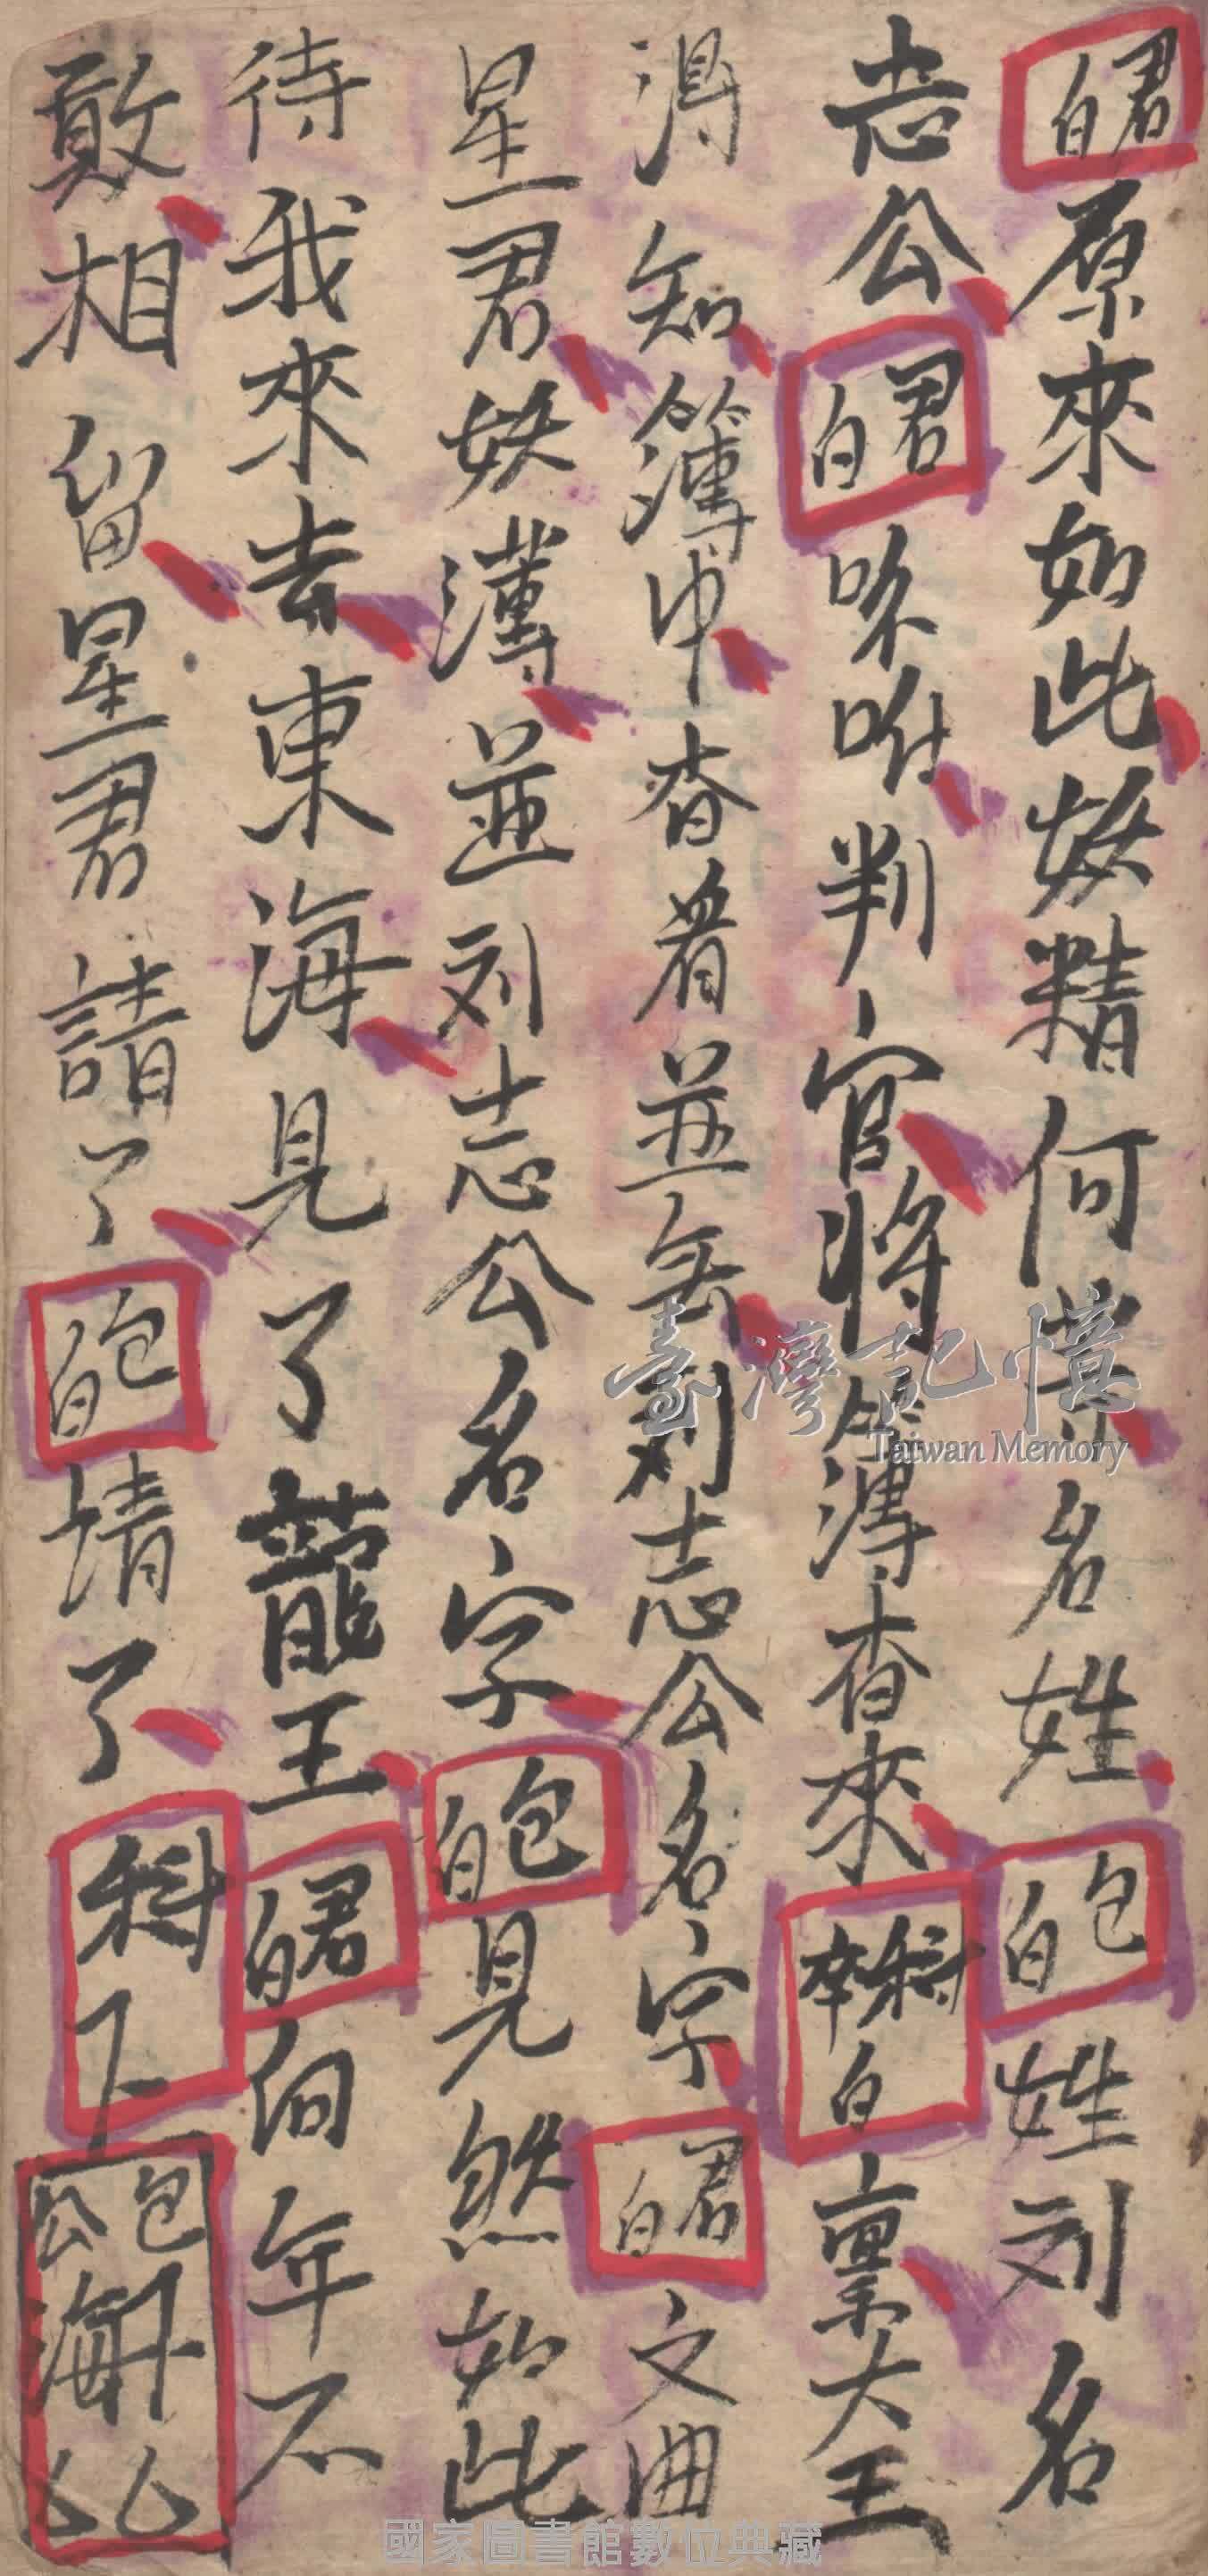 君白原來如此妖精何業名姓包白姓刘名
志公君白吩咐判官將簿查來判白稟大王
得知簿中查看並無刘志公名字君白文曲
星君妖簿並刘志公名字包白見然如此
待我來去東海見了龍王君白向年不
敢相留星君請了包白請了科下
包公海介
臺灣記憶
Taiwan Memory
國家圖書館數位典藏